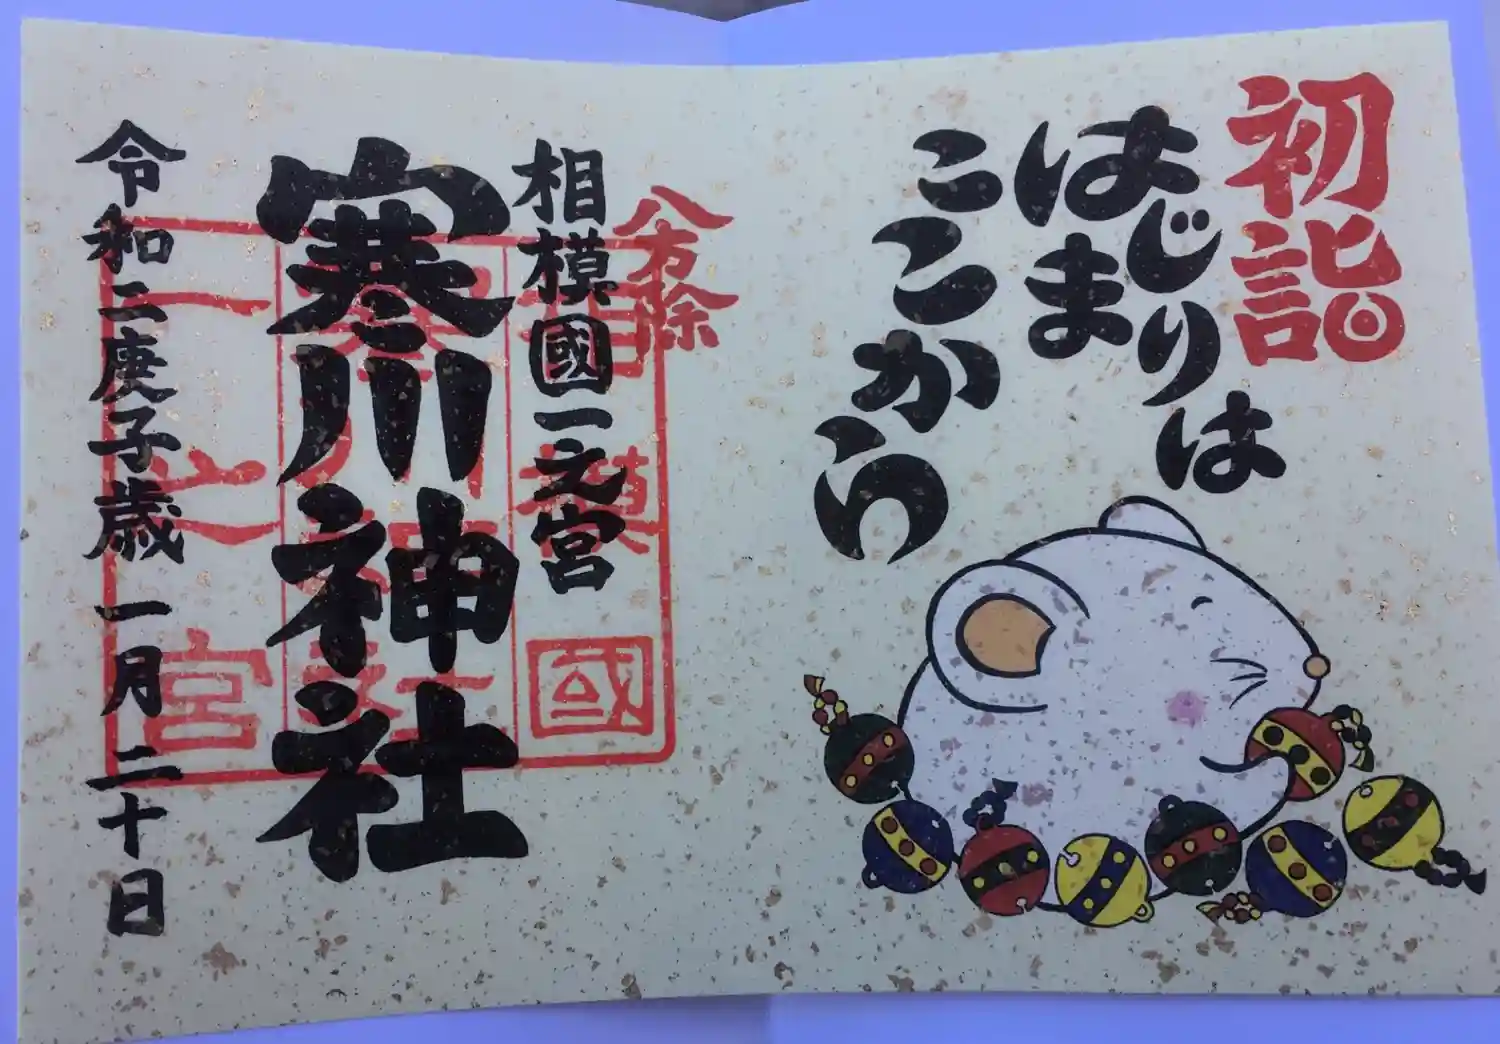 初詣
はじまりは
ここから
八方除
相模國一之宮
寒川神社
令和二庚子歳 一月二十日
相模國
寒川神社
一之宮